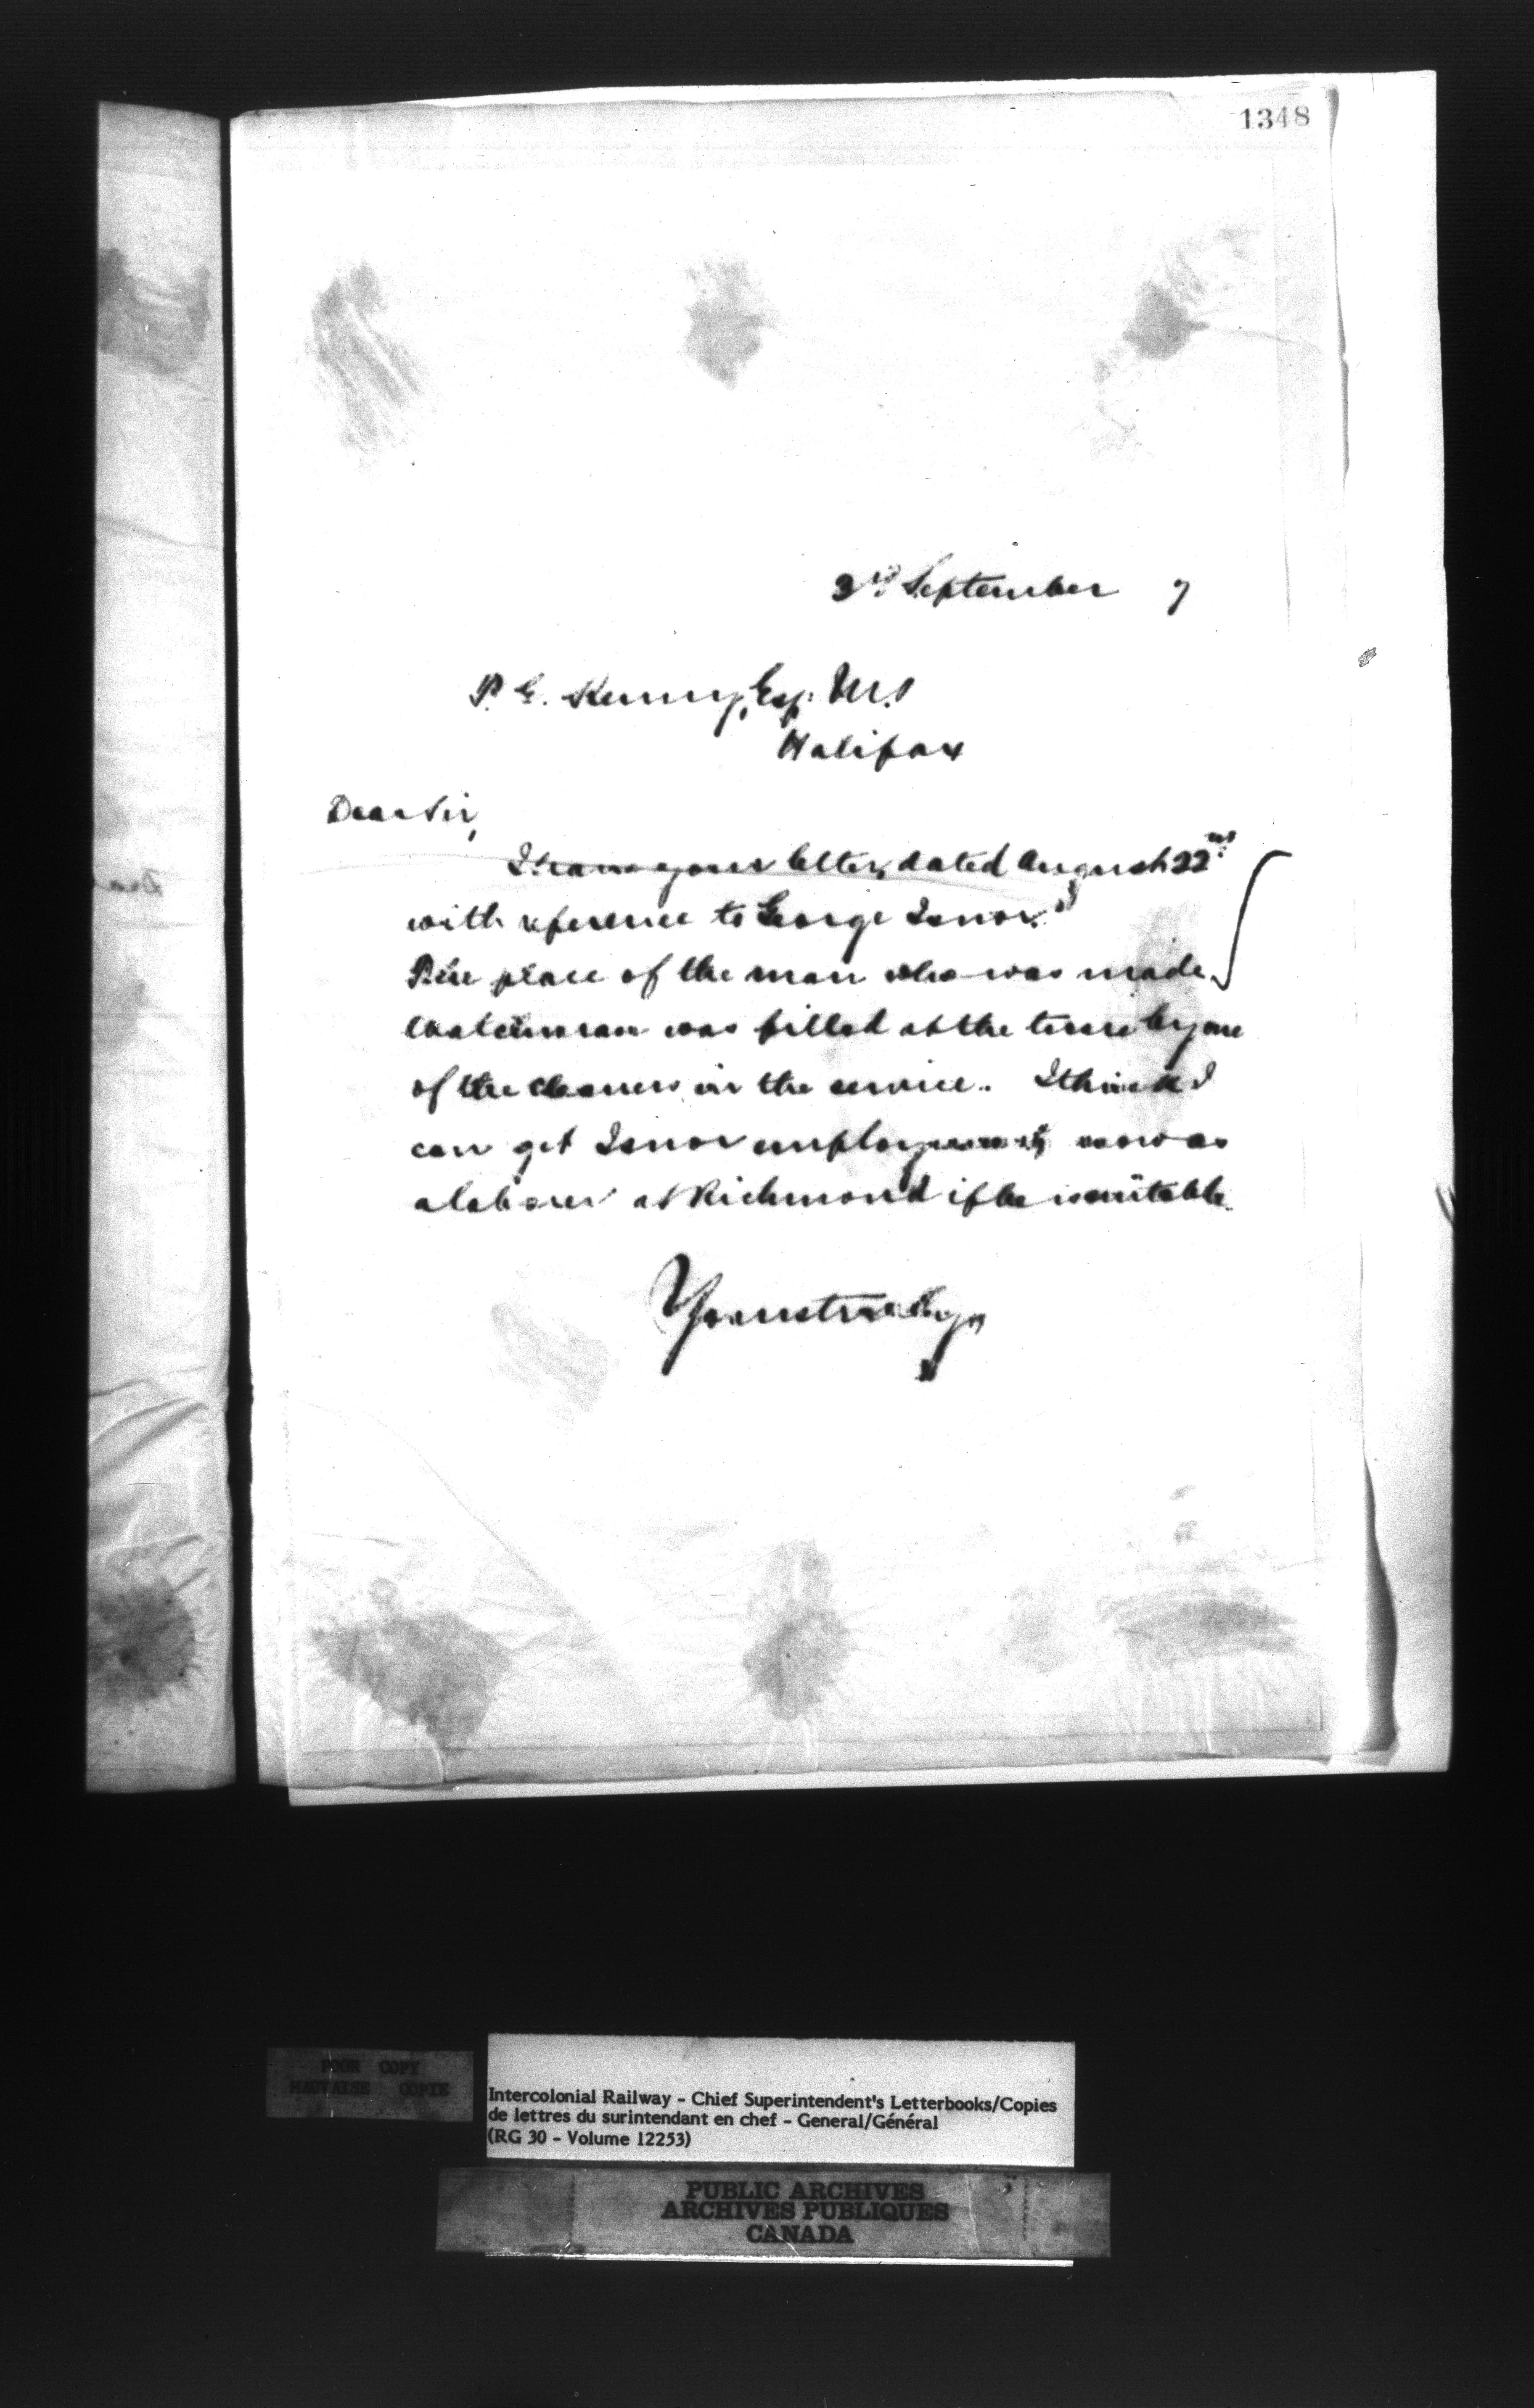 1348
3rd September 7
P. E. Kenny, Esq. M.P.
Halifax
Dear Sir,
I have your letter, dated August 22nd
with reference to George Isnor.
The place of the man who was made
watchman was filled at the time by one
of the cleaners in the service. I think I
can get Isnor employment now as
a laborer at Richmond if he is suitable.
Yours truly,
POOR COPY
MAUVAISE COPIE
Intercolonial Railway - Chief Superintendent's Letterbooks/Copies
de lettres du surintendant en chef - General/Général
(RG 30 - Volume 12253)
PUBLIC ARCHIVES
ARCHIVES PUBLIQUES
CANADA